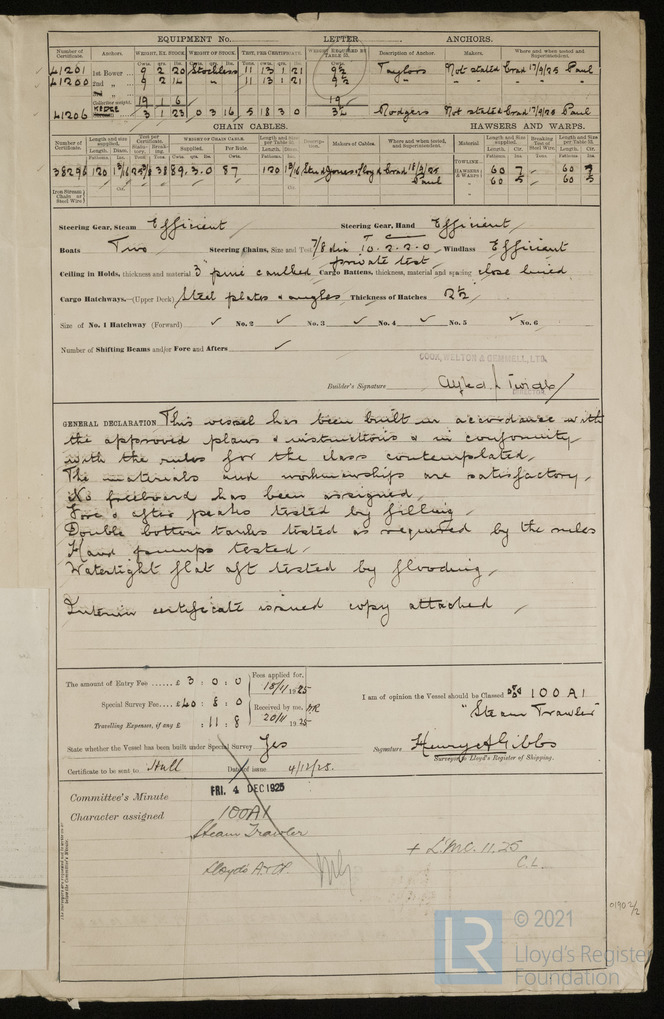 EQUIPMENT No. LETTER ANCHORS.
Number of Certificate. Anchors. WEIGHT, EX. STOCK. WEIGHT OF STOCK. TEST, PER CERTIFICATE. WEIGHT REQUIRED BY TABLE 31. Description of Anchor. Makers. Where and when tested and Superintendent.
Cwts. qrs. lbs. Cwts. qrs. lbs. Tons. cwts. qrs. lbs. Cwts.
41201 1st Bower 9 2 20 Stockless 11 13 1 21 9½ Taylors Not stated Crad 17/9/25 Paul
41200 2nd " 9 2 14 " 11 13 1 21 9½ " " "
Collective weight. 19 1 6 19
41206 KEDGE 3 1 23 0 3 16 5 18 3 0 3½ Rodgers Not stated Crad 17/9/25 Paul
CHAIN CABLES. HAWSERS AND WARPS.
Number of Certificate. Length and size supplied. Test per Certificate. WEIGHT OF CHAIN CABLE. Length and Size per Table 31. Description. Makers of Cables. Where and when tested, and Superintendent. Material Length and Size supplied. Breaking Test of Steel Wire. Length and Size per Table 31.
Length. Diam. Supplied. Per Rule. Length. Diam. Fathoms. Cir. Tons. Fathoms. Cir.
TOWLINE
38296 120 89.3.0 87 120 Stud Jones & Lloyd Crad 18/9/25 HAWSERS & WARPS 60 7 60 7
Paul " 60 5 60 5
Iron Stream Chain or Steel Wire
Steering Gear, Steam Efficient Steering Gear, Hand Efficient
Boats Two Steering Chains, Size and Test 7/8 dia 10.2.2.0 Windlass Efficient
private test
Ceiling in Holds, thickness and material 3" pine caulked Cargo Battens, thickness, material and spacing close lined
Cargo Hatchways.—(Upper Deck) Steel plates & angles Thickness of Hatches 2½
Size of No. 1 Hatchway (Forward) ✓ No. 2 ✓ No. 3 ✓ No. 4 ✓ No. 5 ✓ No. 6
Number of Shifting Beams and/or Fore and Afters ✓
COOK, WELTON & GEMMELL, LTD.
Builder's Signature
GENERAL DECLARATION This vessel has been built in accordance with
the approved plans & instructions & in conformity
with the rules for the class contemplated,
The materials and workmanships are satisfactory,
No freeboard has been assigned,
Fore & after peaks tested by filling,
Double bottom tanks tested as required by the rules
Hand pumps tested,
Watertight flat aft tested by flooding,
Interim certificate issued copy attached,
The amount of Entry Fee ...... £ 3 : 0 : 0 Fees applied for,
18/11 1925
Special Survey Fee.... £40 : 8 : 0 Received by me,
Travelling Expenses, if any £ : 11 : 8 20/11 1925
I am of opinion the Vessel should be Classed ✠ 100A1
"Steam Trawler"
State whether the Vessel has been built under Special Survey Yes Signature Henry A Gibbs
Surveyor to Lloyd's Register of Shipping.
Certificate to be sent to Hull Date of issue 4/12/25.
Committee's Minute FRI. 4 DEC 1925
Character assigned 100A1
Steam Trawler
Lloyds A & CP. + LMC. 11.25
C.L.
01902/2
LR
© 2021
Lloyd's Register
Foundation